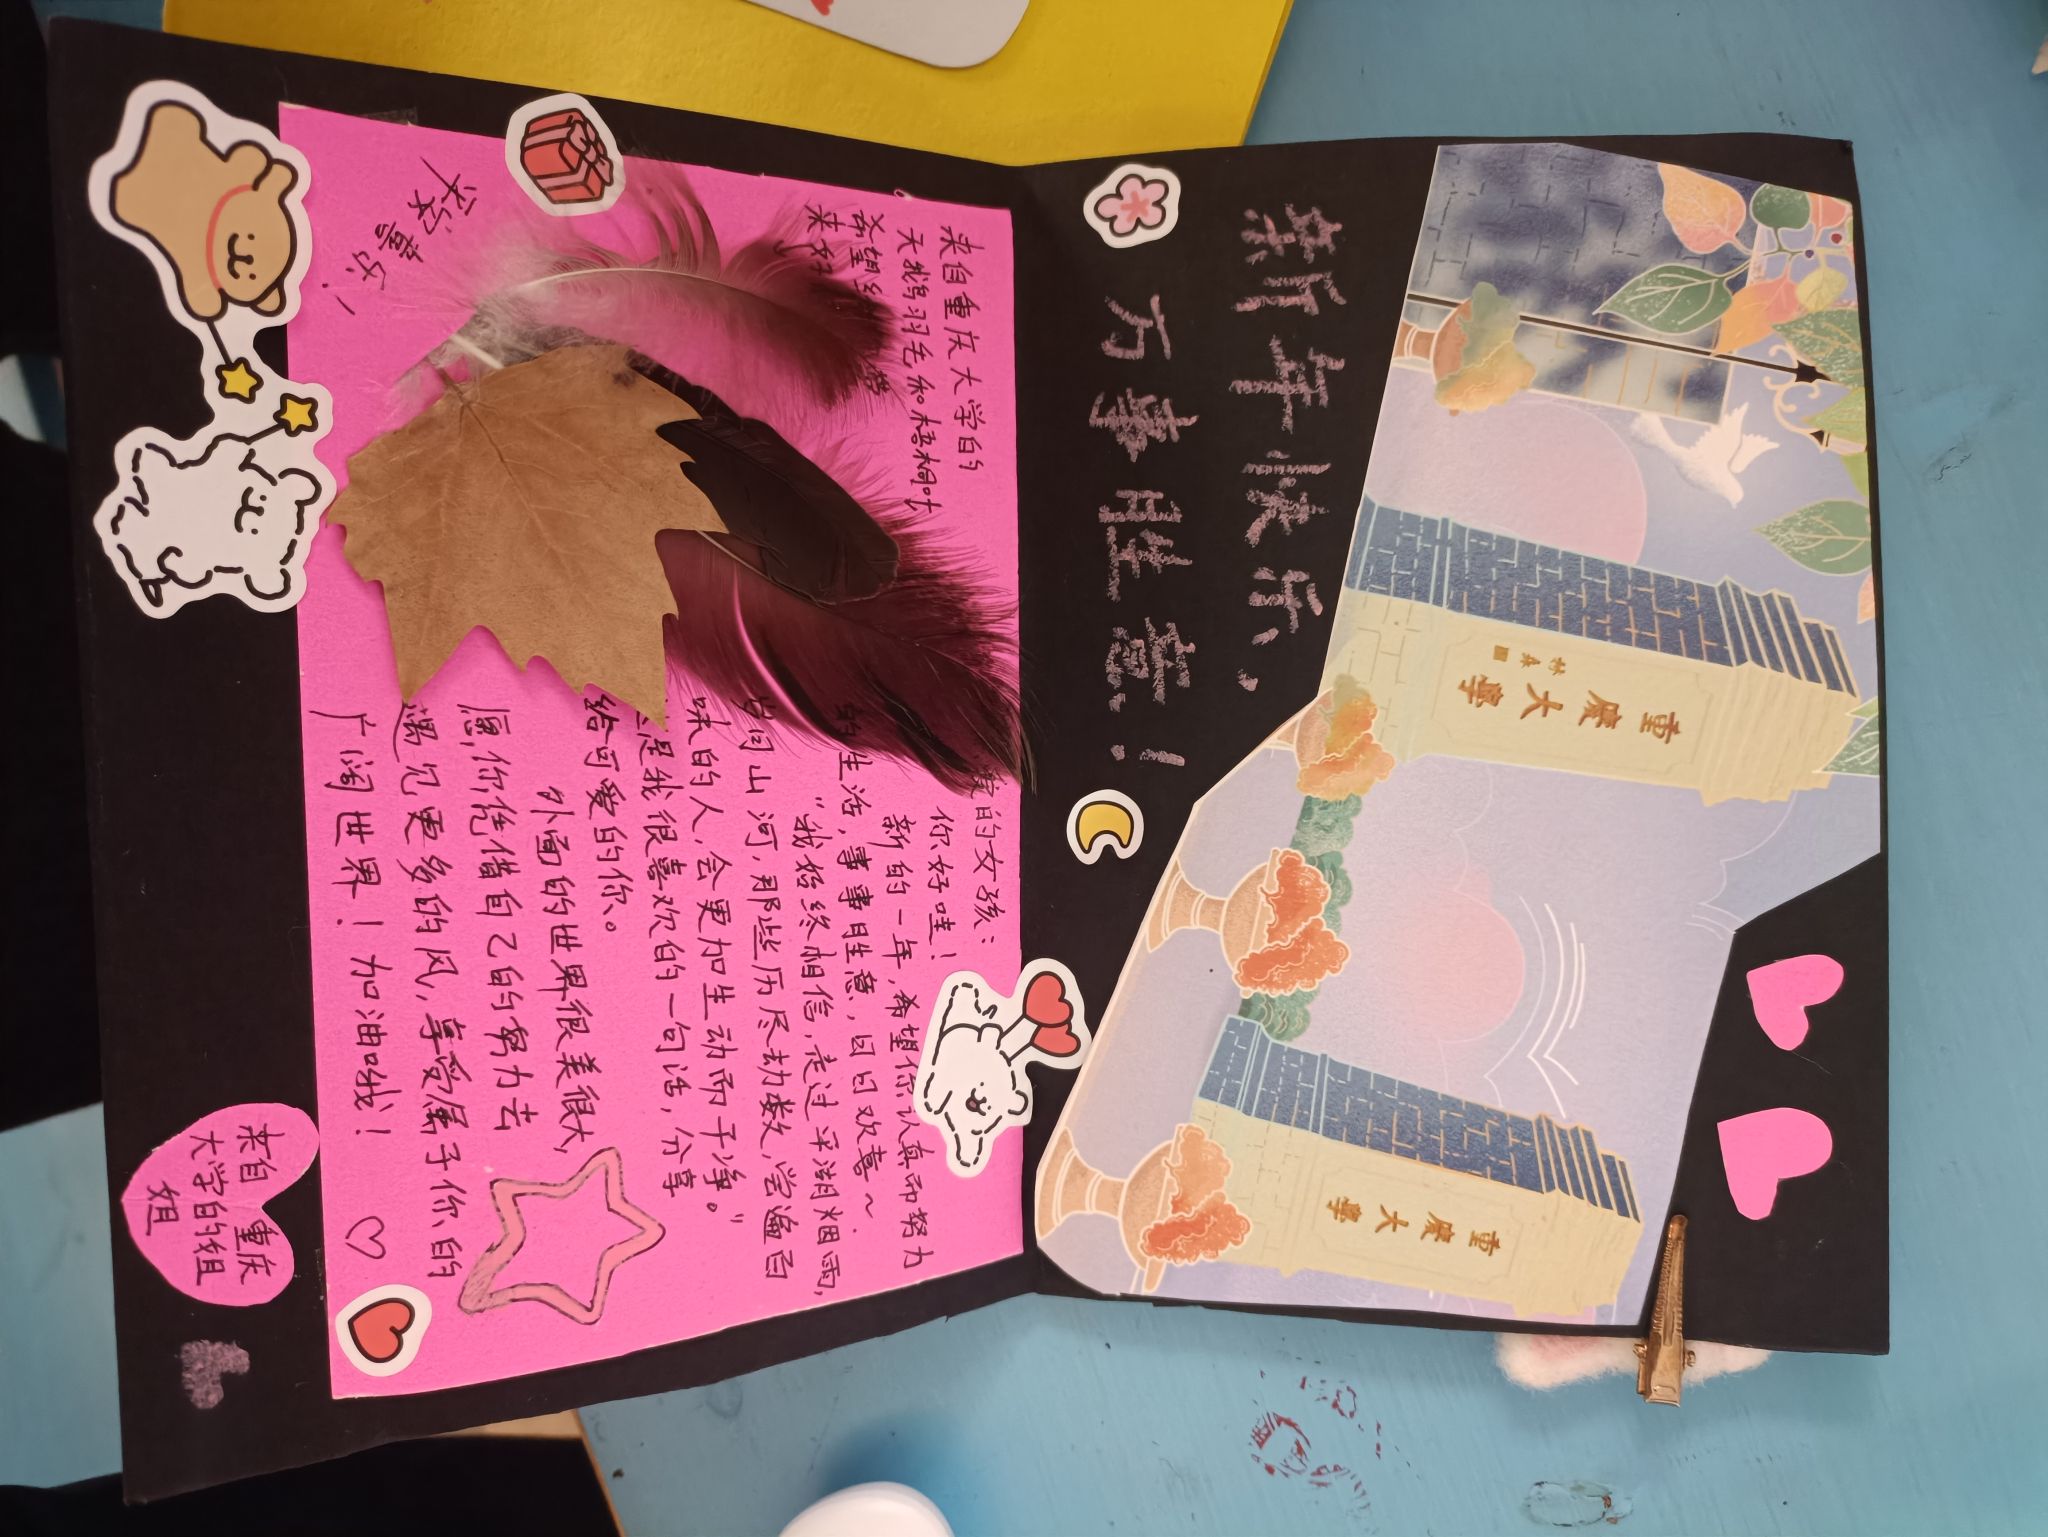 重慶大學
林森
重慶大學
新年快乐，
万事胜意！
来自重庆大学的
天鹅羽毛和梧桐叶
希望
带
来好
平安喜乐！
爱的女孩：
你好哇！
新的一年，希望你认真而努力
生活，事事胜意，日日欢喜～.
“我始终相信，走过平湖烟雨，
岁月山河，那些历尽劫数，尝遍百
味的人，会更加生动而干净。”
这是我很喜欢的一句话，分享
给可爱的你。
外面的世界很美很大，
愿你凭借自己的努力去
遇见更多的风，享受属于你的
广阔世界！加油哦！
来自重庆
大学的姐
姐